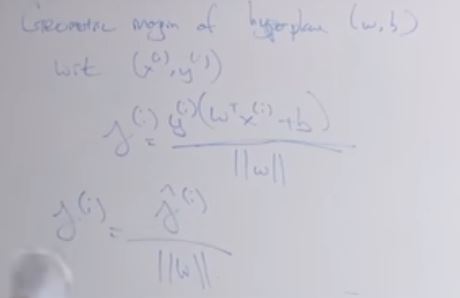 Geometric margin of hyperplane (w, b)
wrt (x^{(i)}, y^{(i)})
γ^{(i)} = \frac{y^{(i)}(w^T x^{(i)} + b)}{||w||}
γ^{(i)} = \frac{\hat{γ}^{(i)}}{||w||}